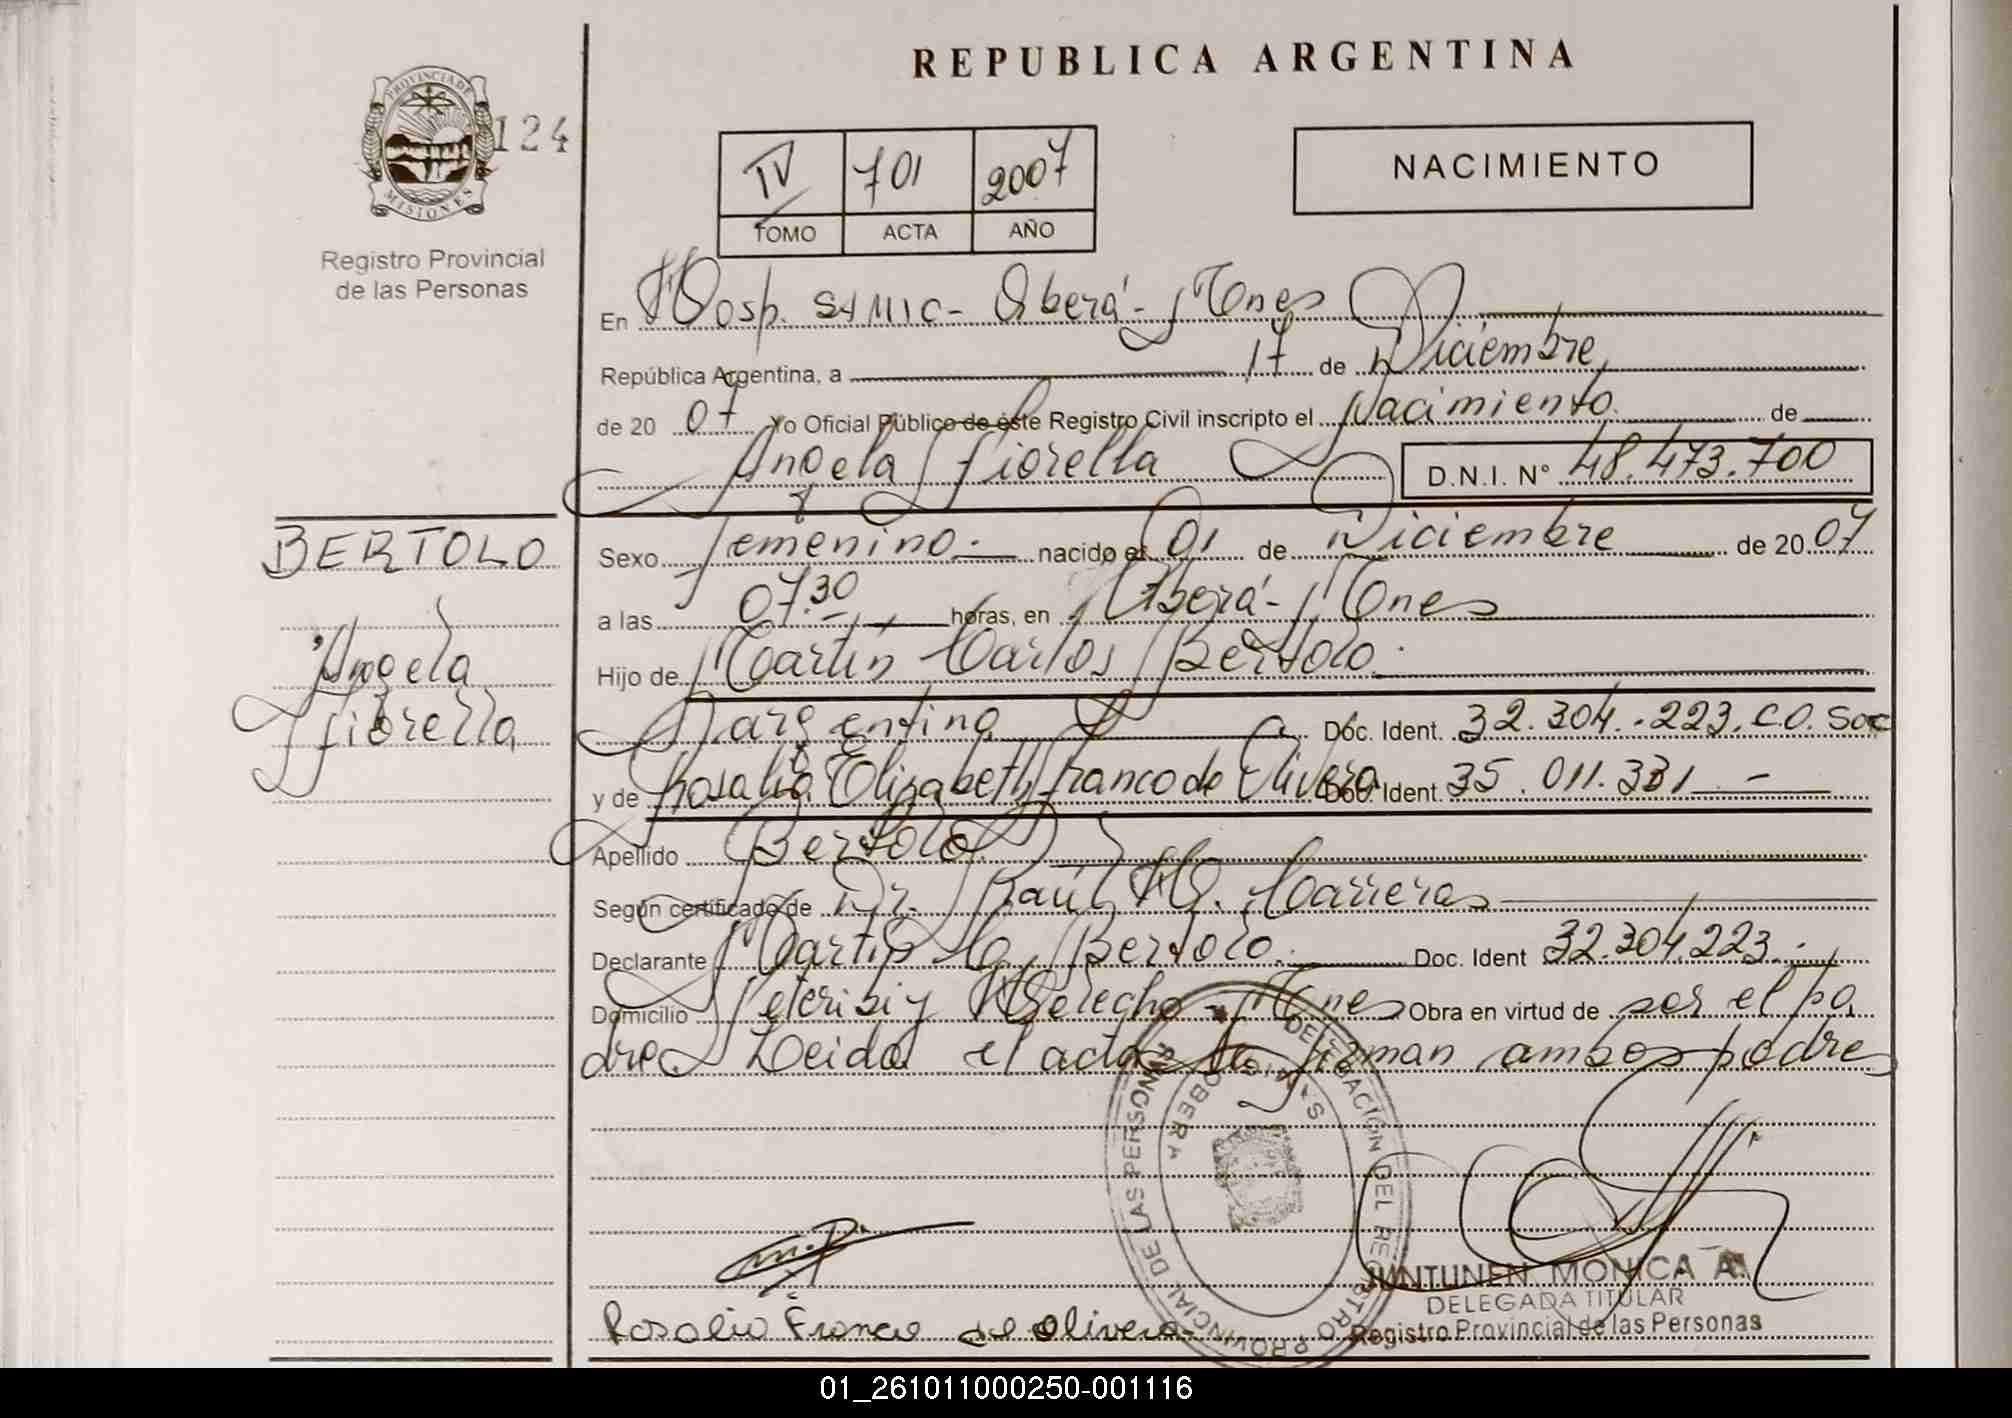 REPUBLICA ARGENTINA
PROVINCIA DE MISIONES
124
Registro Provincial
de las Personas
IV 701 2007
TOMO ACTA AÑO
NACIMIENTO
En Hosp. SAMIC - Oberá - Mnes
República Argentina, a 17 de Diciembre
de 20 07 Yo Oficial Público de éste Registro Civil inscripto el Nacimiento de
Angela Fiorella D.N.I. N° 48.473.700
BERTOLO
Angela
Fiorella
Sexo Femenino. nacido el 01 de Diciembre de 20 07
a las 07.30 horas, en Oberá - Mnes
Hijo de Martín Carlos Bertolo.
argentina Doc. Ident. 32.304.223.
y de Rosalia Elizabeth Franco de Olivera Doc. Ident. 35.011.331
Apellido Bertolo
Según certificado de Dr. Raúl H. Carreras
Declarante Martín C. Bertolo. Doc. Ident 32.304.223.
Domicilio y Mnes Obra en virtud de ser el pa
dre Leida el acta la firman ambos padres
DELEGACIÓN DEL REGISTRO PROVINCIAL DE LAS PERSONAS
OBERA
Rosalia Franco de Olivera
JUNTUNEN MONICA A.
DELEGADA TITULAR
Registro Provincial de las Personas
01_261011000250-001116